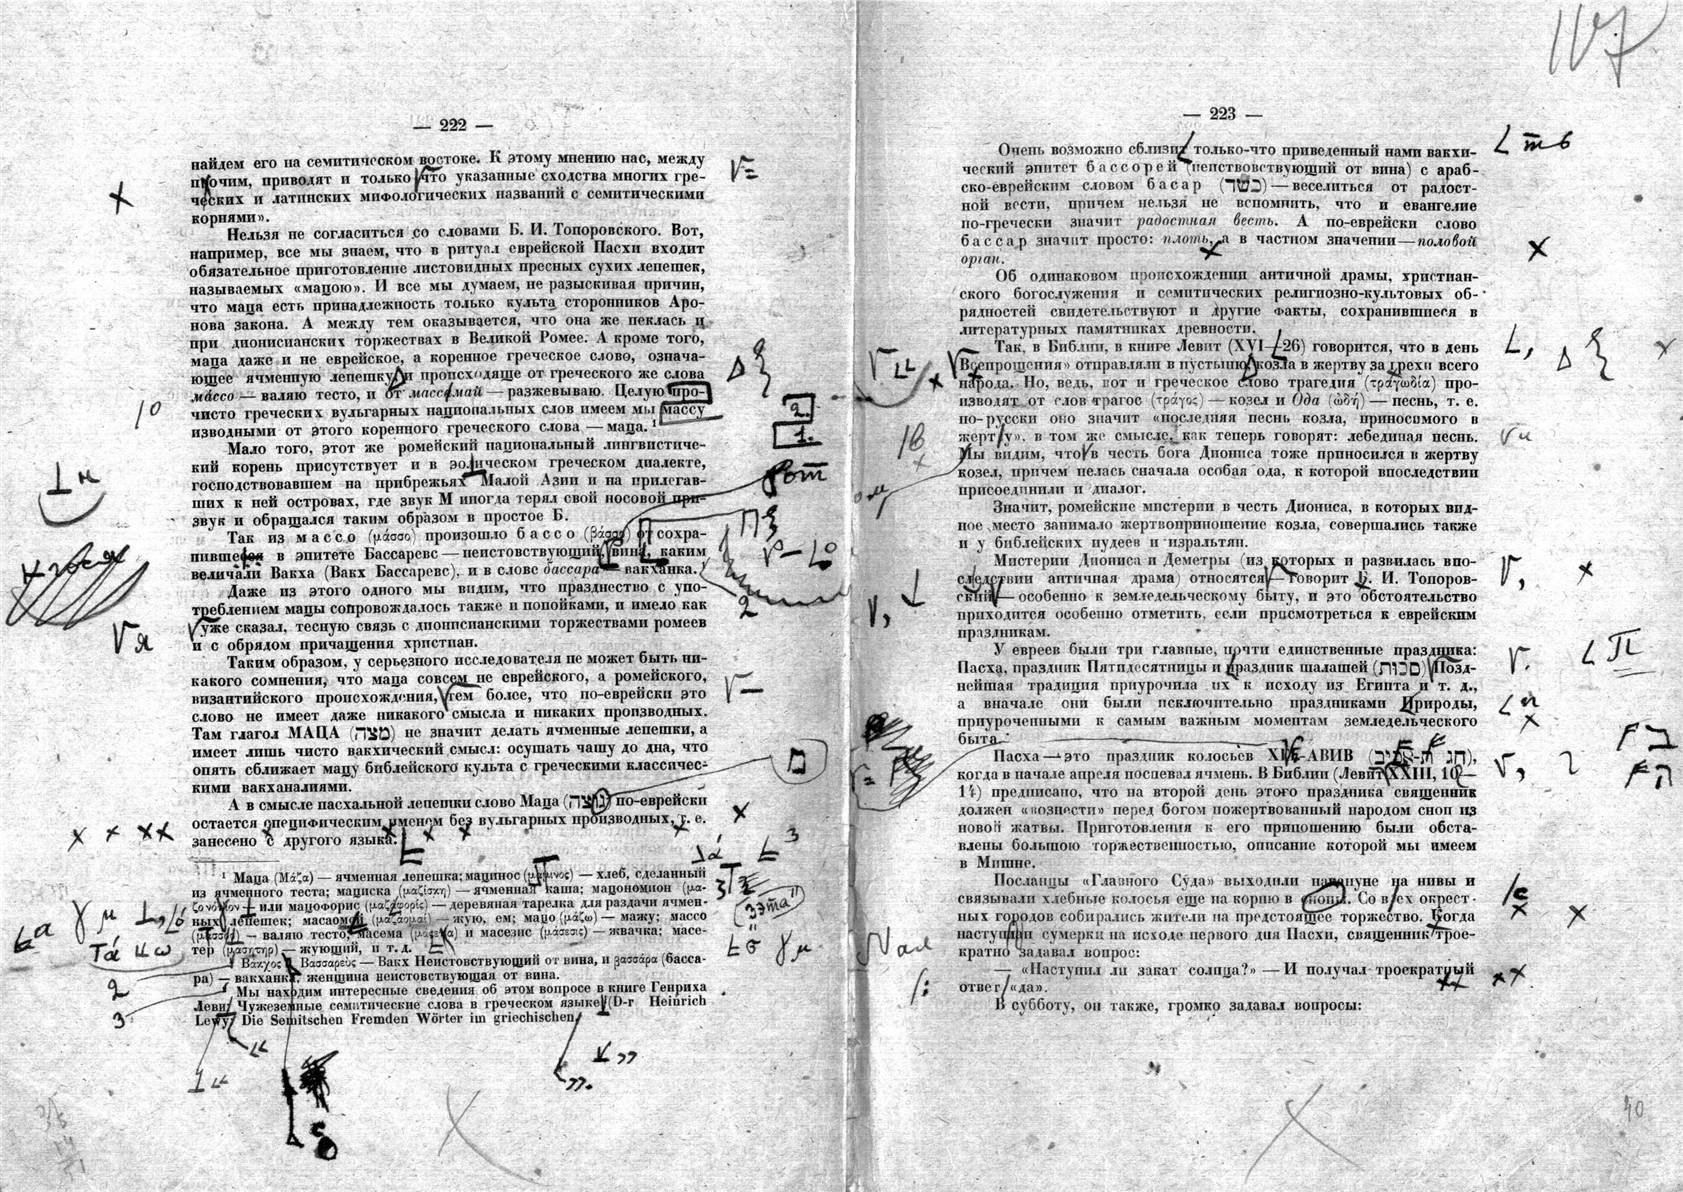 — 222 —
найдем его на семитическом востоке. К этому мнению нас, между
прочим, приводят и только что указанные сходства многих гре-
ческих и латинских мифологических названий с семитическими
корнями».
Нельзя не согласиться со словами Б. И. Топоровского. Вот,
например, все мы знаем, что в ритуал еврейской Пасхи входит
обязательное приготовление листовидных пресных сухих лепешек,
называемых «мацою». И все мы думаем, не разыскивая причин,
что маца есть принадлежность только культа сторонников Аро-
нова закона. А между тем оказывается, что она же пеклась и
при дионисианских торжествах в Великой Ромее. А кроме того,
маца даже и не еврейское, а коренное греческое слово, означа-
ющее ячменную лепешку и происходящее от греческого же слова
мáссо — валяю тесто, и от — разжевываю. Целую про-
чисто греческих вульгарных национальных слов имеем мы массу
изводными от этого коренного греческого слова — маца. ¹
Мало того, этот же ромейский национальный лингвистиче-
ский корень присутствует и в эолическом греческом диалекте,
господствовавшем на прибрежьях Малой Азии и на прилегав-
ших к ней островах, где звук М иногда терял свой носовой при-
звук и обращался таким образом в простое Б.
Так из массо (μάσσο) произошло бассо (βάσσο) от сохра-
в эпитете Бассаревс — неистовствующий вина, каким
величали Вакха (Вакх Бассаревс), и в слове бассара — вакханка.
Даже из этого одного мы видим, что празднество с упо-
треблением мацы сопровождалось также и попойками, и имело как
уже сказал, тесную связь с дионисианскими торжествами ромеев
и с обрядом причащения христиан.
Таким образом, у серьезного исследователя не может быть ни-
какого сомнения, что маца совсем не еврейского, а ромейского,
византийского происхождения, тем более, что по-еврейски это
слово не имеет даже никакого смысла и никаких производных.
Там глагол МАЦА (מצה) не значит делать ячменные лепешки, а
имеет лишь чисто вакхический смысл: осушать чашу до дна, что
опять сближает мацу библейского культа с греческими классичес-
кими вакханалиями.
А в смысле пасхальной лепешки слово Маца по-еврейски
остается специфическим именем без вульгарных производных, т. е.
занесено с другого языка.
¹ Маца (Μάζα) — ячменная лепешка; мацинос — хлеб, сделанный
из ячменного теста; мациска (μαζίσκη) — ячменная каша; мацономион (μα-
или мацофорис — деревяная тарелка для раздачи ячмен-
ных лепешек; (μαζάομαι) — жую, ем; мацо (μάζω) — мажу; массо
— валяю тесто; масема и масезис (μάσεσις) — жвачка; масе-
тер (μασητηρ) — жующий, и т. д.
Βάκχος Βασσαρεὺς — Вакх Неистовствующий от вина, и βασσάρα (басса-
ра) — вакханка, женщина неистовствующая от вина.
Мы находим интересные сведения об этом вопросе в книге Генриха
Леви Чужеземные семитические слова в греческом языке (D-r Heinrich
Lewy: Die Semitschen Fremden Wörter im griechischen
— 223 —
Очень возможно сблизит только-что приведенный нами вакхи-
ческий эпитет бассорей (неистовствующий от вина) с араб-
ско-еврейским словом басар (בשר) — веселиться от радост-
ной вести, причем нельзя не вспомнить, что и евангелие
по-гречески значит радостная весть. А по-еврейски слово
бассар значит просто: плоть, а в частном значении — половой
орган.
Об одинаковом происхождении античной драмы, христиан-
ского богослужения и семитических религиозно-культовых об-
рядностей свидетельствуют и другие факты, сохранившиеся в
литературных памятниках древности.
Так, в Библии, в книге Левит (XVI 26) говорится, что в день
Всепрощения» отправляли в пустыню козла в жертву за грехи всего
народа. Но, ведь, вот и греческое слово трагедия (τράγωδία) про-
изводят от слов трагос (τράγος) — козел и Ода (ώδή) — песнь, т. е.
по-русски оно значит «последняя песнь козла, приносимого в
жертву», в том же смысле, как теперь говорят: лебединая песнь.
Мы видим, что в честь бога Диониса тоже приносился в жертву
козел, причем пелась сначала особая ода, к которой впоследствии
присоединили и диалог.
Значит, ромейские мистерии в честь Диониса, в которых вид-
ное место занимало жертвоприношение козла, совершались также
и у библейских иудеев и изральтян.
Мистерии Диониса и Деметры (из которых и развилась впо-
следствии античная драма) относятся — говорит Б. И. Топоров-
ский — особенно к земледельческому быту, и это обстоятельство
приходится особенно отметить, если присмотреться к еврейским
праздникам.
У евреев были три главные, почти единственные праздника:
Пасха, праздник Пятидесятницы и праздник шалашей (סכות) Позд-
нейшая традиция приурочила их к исходу из Египта и т. д.,
а вначале они были исключительно праздниками Природы,
приуроченными к самым важным моментам земледельческого
быта.
Пасха — это праздник колосьев -АВИВ
когда в начале апреля поспевал ячмень. В Библии (Левит XXIII, 10—
14) предписано, что на второй день этого праздника священник
должен «вознести» перед богом пожертвованный народом сноп из
новой жатвы. Приготовления к его приношению были обста-
влены большою торжественностью, описание которой мы имеем
в Мишне.
Посланцы «Главного Суда» выходили накануне на нивы и
связывали хлебные колосья еще на корню в снопы. Со всех окрест-
ных городов собирались жители на предстоящее торжество. Когда
наступили сумерки на исходе первого дня Пасхи, священник трое-
кратно задавал вопрос:
— «Наступил ли закат солнца?» — И получал троекратный
ответ «да».
В субботу, он также, громко задавал вопросы: